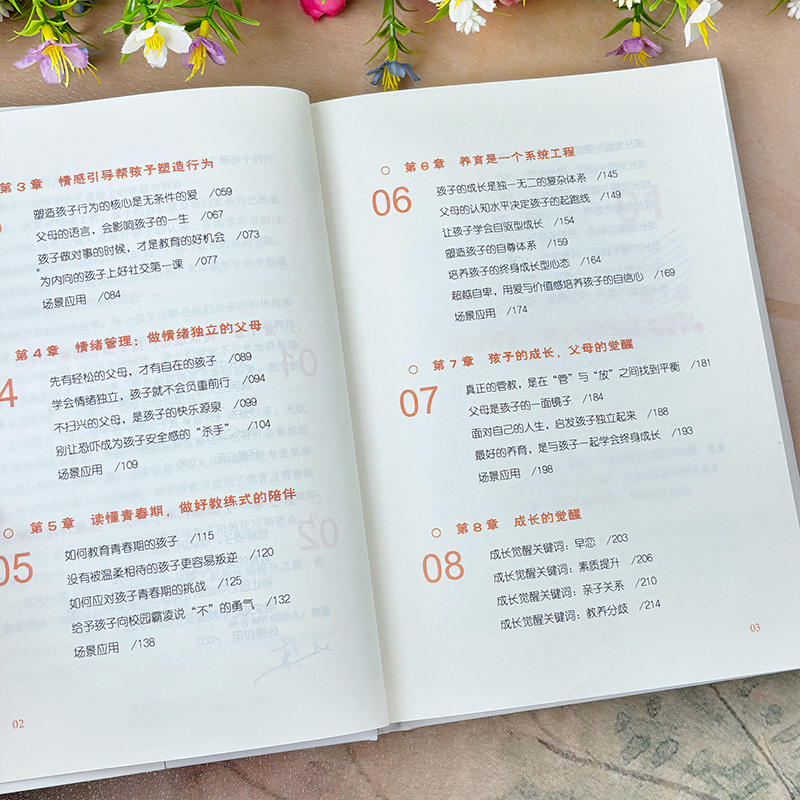 第3章 情感引导帮孩子塑造行为
塑造孩子行为的核心是无条件的爱 /059
父母的语言，会影响孩子的一生 /067
孩子做对事的时候，才是教育的好机会 /073
为内向的孩子上好社交第一课 /077
场景应用 /084
第4章 情绪管理：做情绪独立的父母
4
先有轻松的父母，才有自在的孩子 /089
学会情绪独立，孩子就不会负重前行 /094
不扫兴的父母，是孩子的快乐源泉 /099
别让恐吓成为孩子安全感的“杀手” /104
场景应用 /109
第5章 读懂青春期，做好教练式的陪伴
05
如何教育青春期的孩子 /115
没有被温柔相待的孩子更容易叛逆 /120
如何应对孩子青春期的挑战 /125
给予孩子向校园霸凌说“不”的勇气 /132
场景应用 /138
02
第6章 养育是一个系统工程
06
孩子的成长是独一无二的复杂体系 /145
父母的认知水平决定孩子的起跑线 /149
让孩子学会自驱型成长 /154
塑造孩子的自尊体系 /159
培养孩子的终身成长型心态 /164
超越自卑，用爱与价值感培养孩子的自信心 /169
场景应用 /174
第7章 孩子的成长，父母的觉醒
07
真正的管教，是在“管”与“放”之间找到平衡 /181
父母是孩子的一面镜子 /184
面对自己的人生，启发孩子独立起来 /188
最好的养育，是与孩子一起学会终身成长 /193
场景应用 /198
第8章 成长的觉醒
08
成长觉醒关键词：早恋 /203
成长觉醒关键词：素质提升 /206
成长觉醒关键词：亲子关系 /210
成长觉醒关键词：教养分歧 /214
03